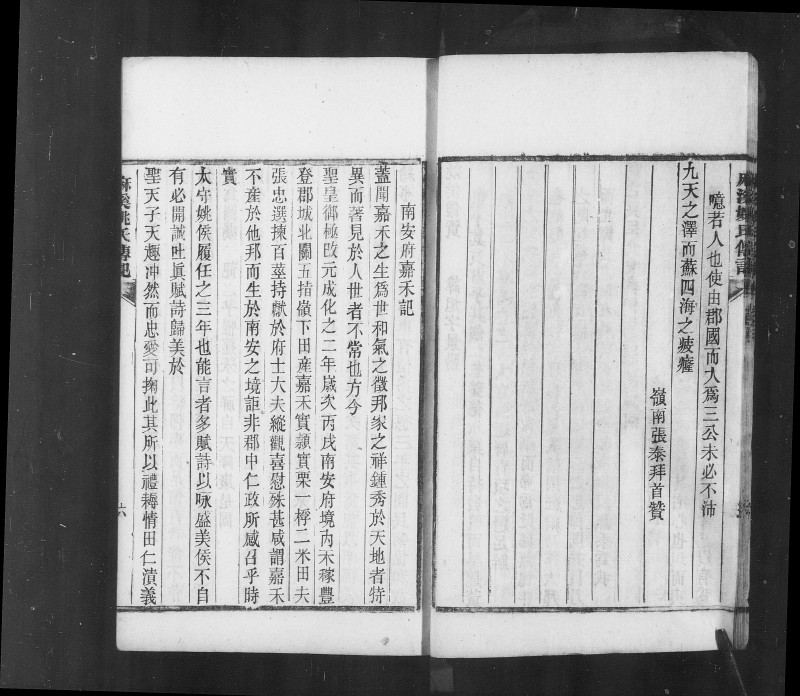 噫若人也使由郡國而入爲三公未必不沛
九天之澤而蘇四海之疲癃
嶺南張泰拜首贊
南安府嘉禾記
蓋聞嘉禾之生爲世和氣之徵邦家之祥鍾秀於天地者特
異而著見於人世者不常也方今
聖皇御極改元成化之二年歲次丙戌南安府境內禾稼豐
登郡城北關五指嶺下田產嘉禾實穎實栗一稃二米田夫
張忠選揀百莖持獻於府士大夫縱觀喜慰殊甚咸謂嘉禾
不產於他邦而生於南安之境詎非郡中仁政所感召乎時
實
太守姚侯履任之三年也能言者多賦詩以咏盛美侯不自
有必開誠吐眞賦詩歸美於
聖天子天趣冲然而忠愛可掬此其所以禮耨情田仁漬義
麻溪姚氏傳記
六